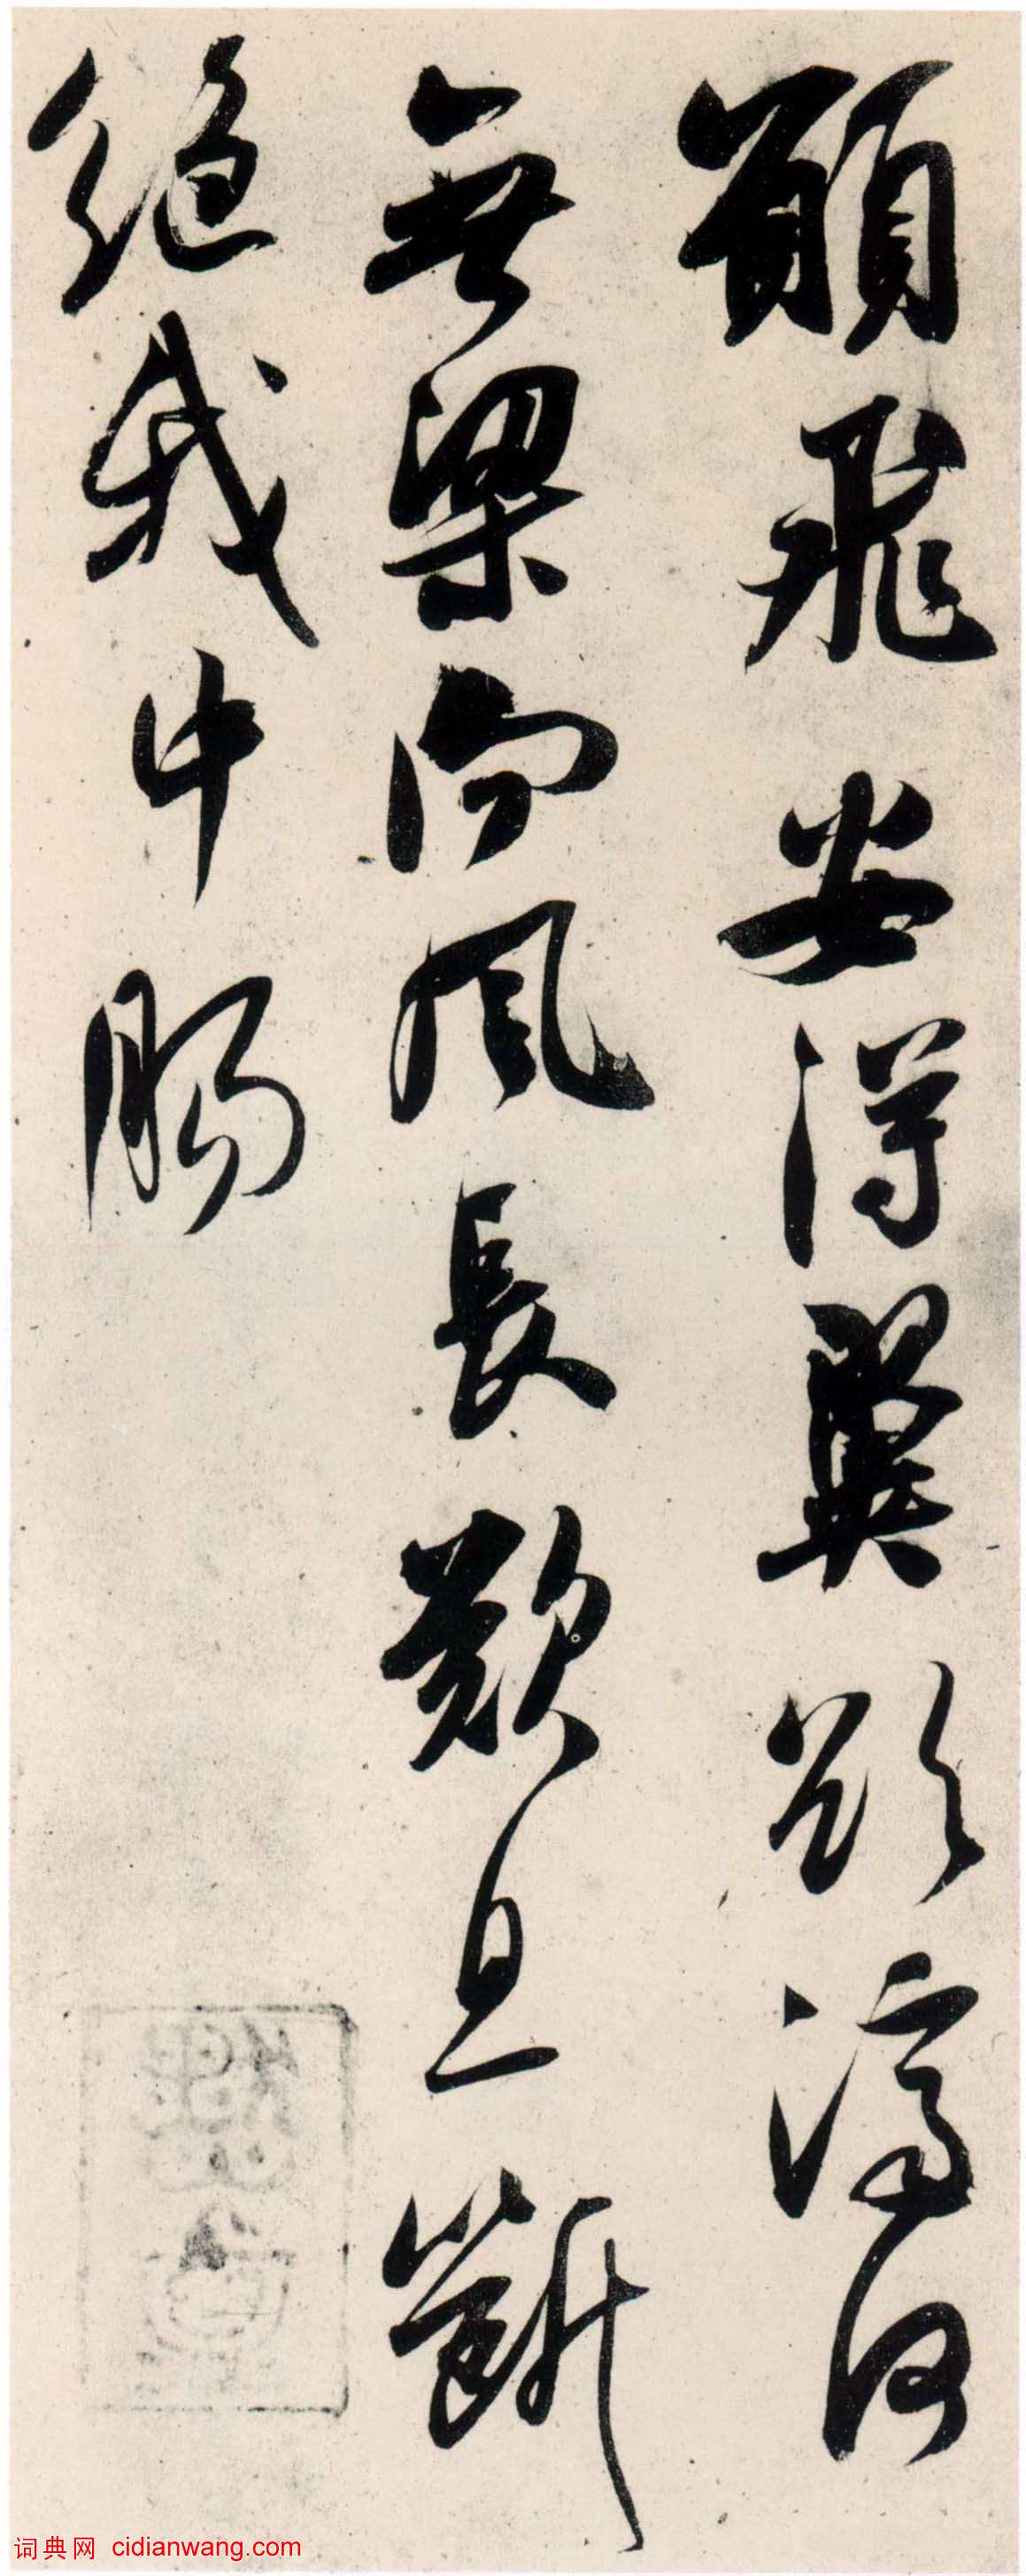 願飛安得翼欲濟河
無梁向風長歎息斷
絕我中腸
词典网 cidianwang.com